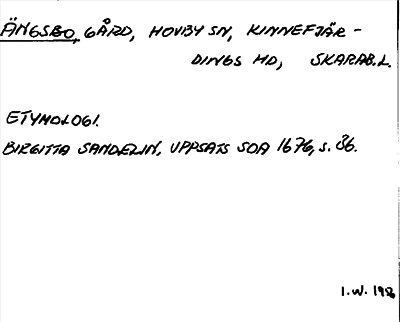 ÄNGSBO, GÅRD, HOVBY SN, KINNEFJÄR-
DINGS HD, SKARAB.L.
ETYMOLOGI.
BIRGITTA SANDELIN, UPPSATS SOA 1676, s. 36.
I.W. 198